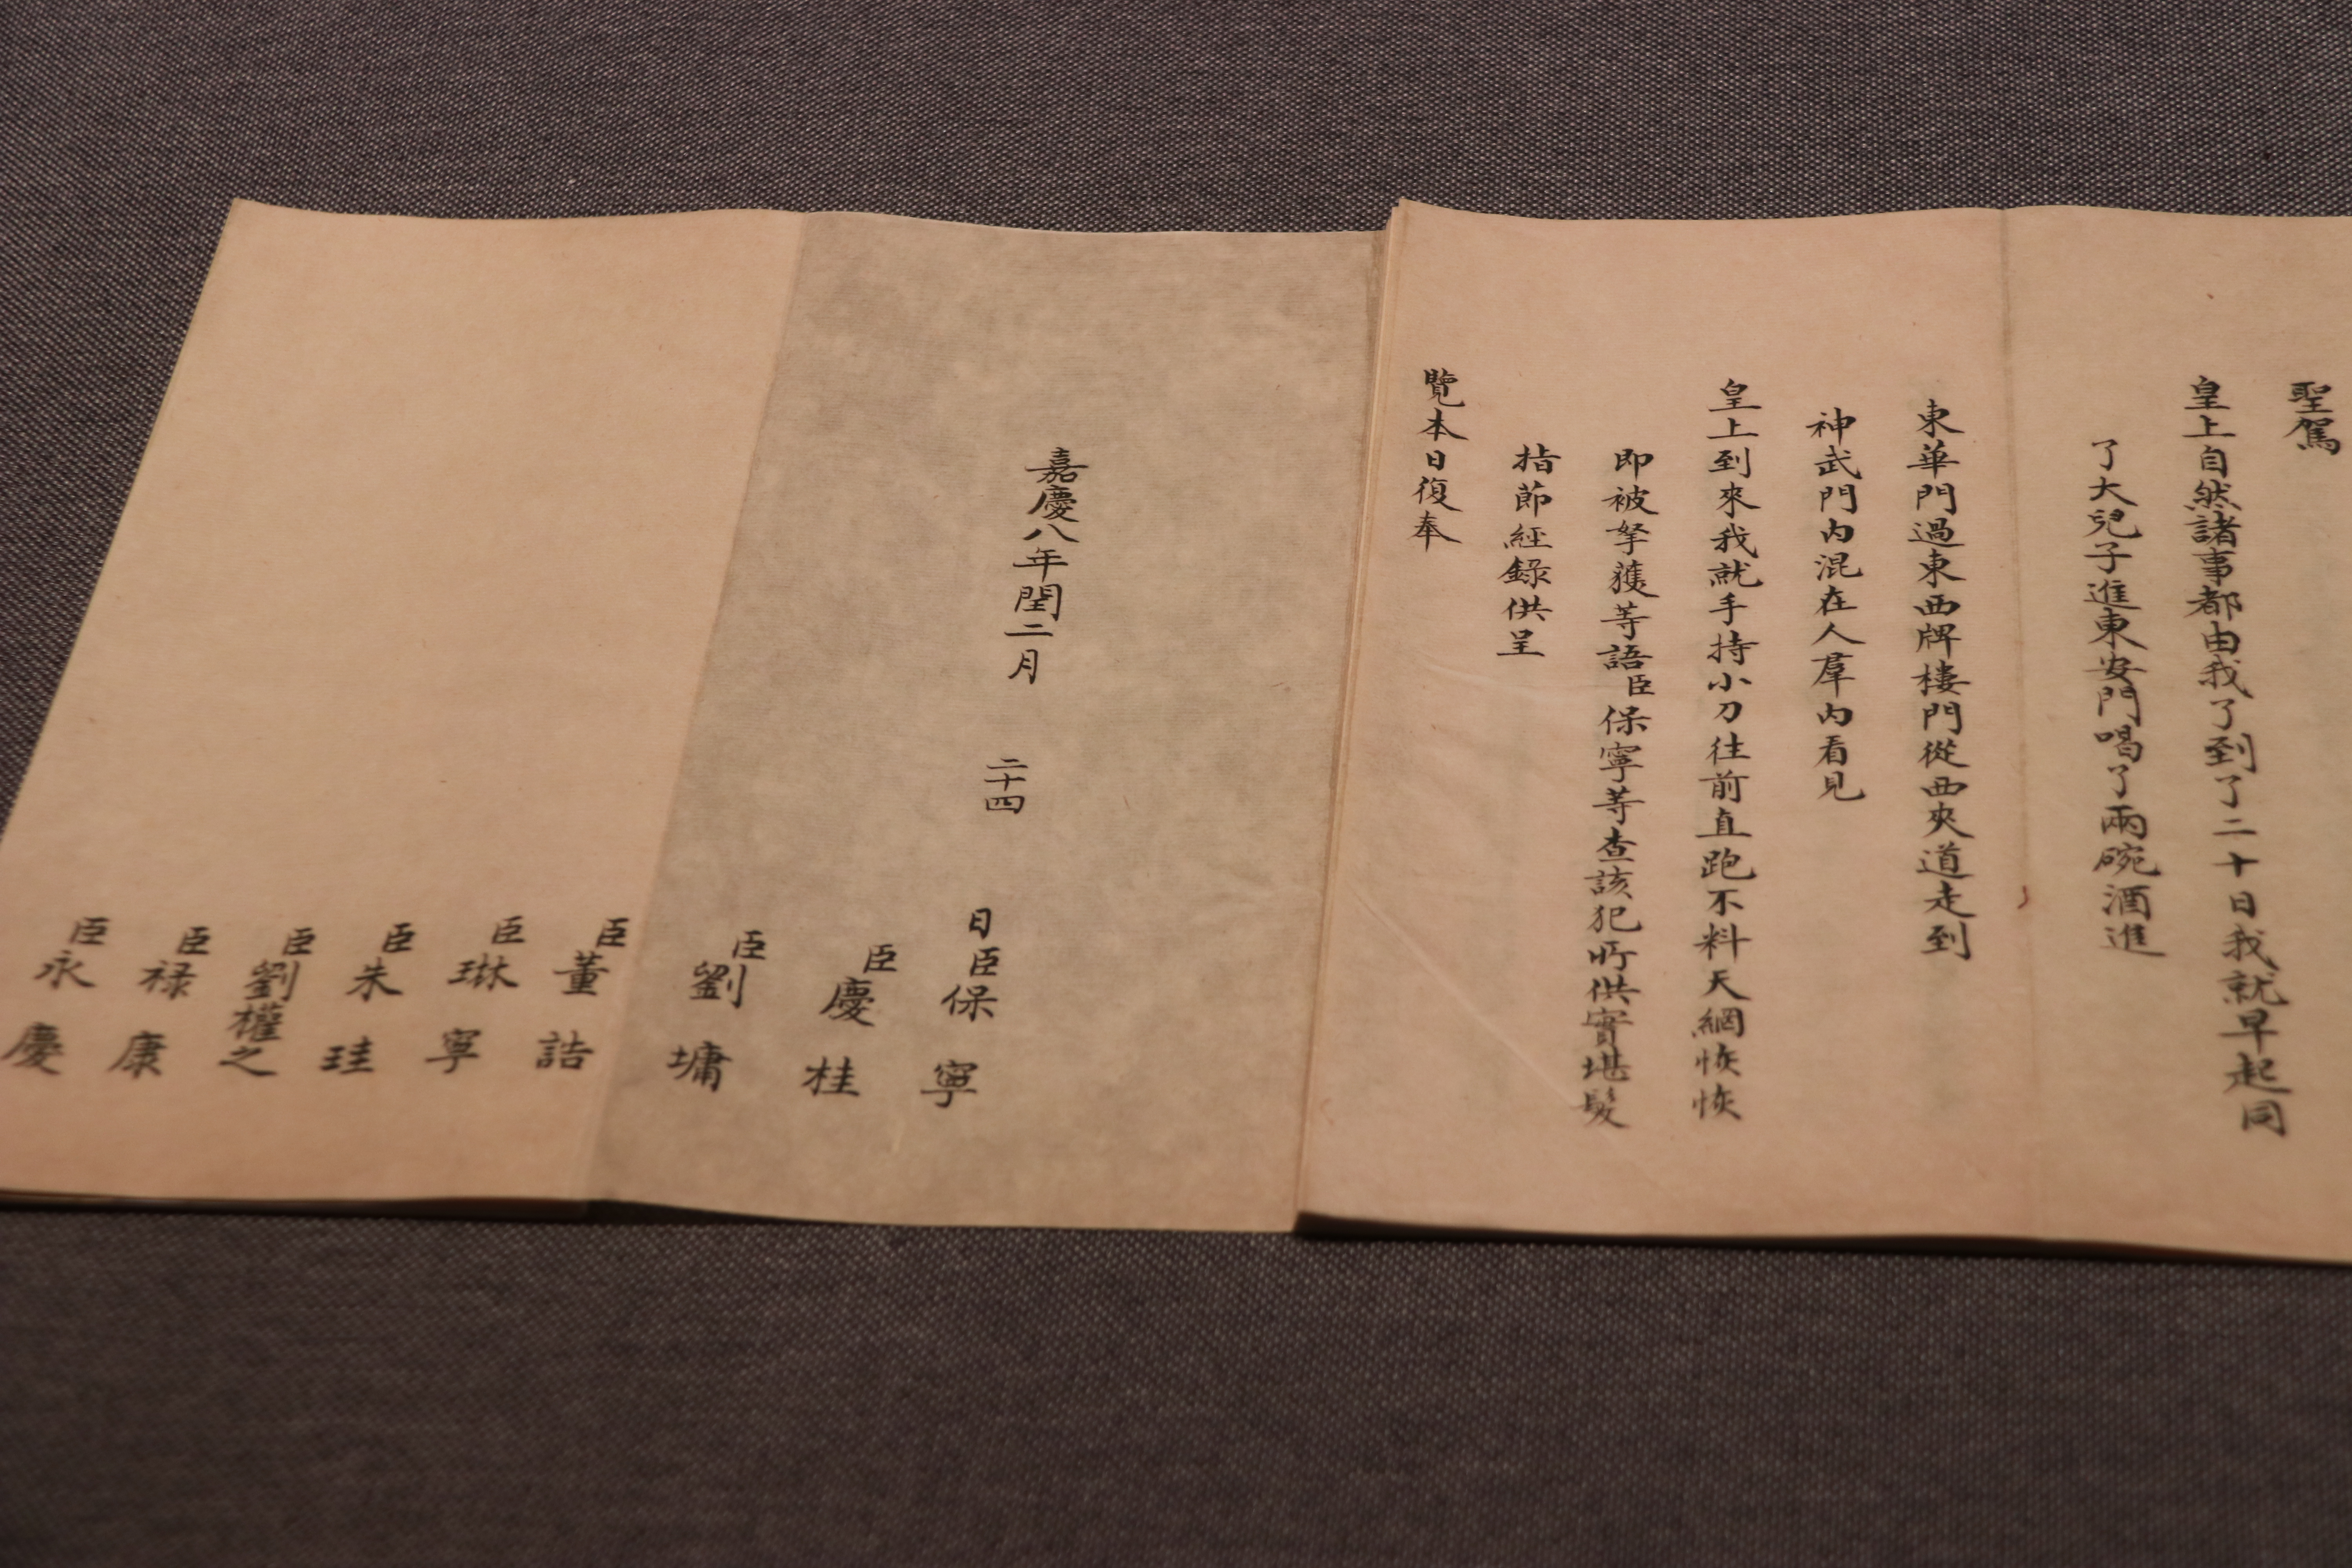 聖駕
皇上自然諸事都由我了到了二十日我就早起同
了大兒子進東安門喝了兩碗酒進
東華門過東西牌樓門從西夾道走到
神武門內混在人羣內看見
皇上到來我就手持小刀往前直跑不料天網恢恢
即被拏獲等語臣保寧等查該犯所供實堪髮
指節經錄供呈
覽本日復奉
嘉慶八年閏二月 二十四 日臣保寧
臣慶桂
臣劉墉
臣董誥
臣琳寧
臣朱珪
臣劉權之
臣祿康
臣永慶